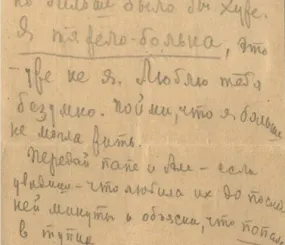 но дальше было бы хуже.
Я тяжело-больна, это
уже не я. Люблю тебя
безумно. Пойми, что я больше
не могла жить.
Передай папе и Але – если
увидишь – что любила их до послед
ней минуты и объясни, что попала
в тупик